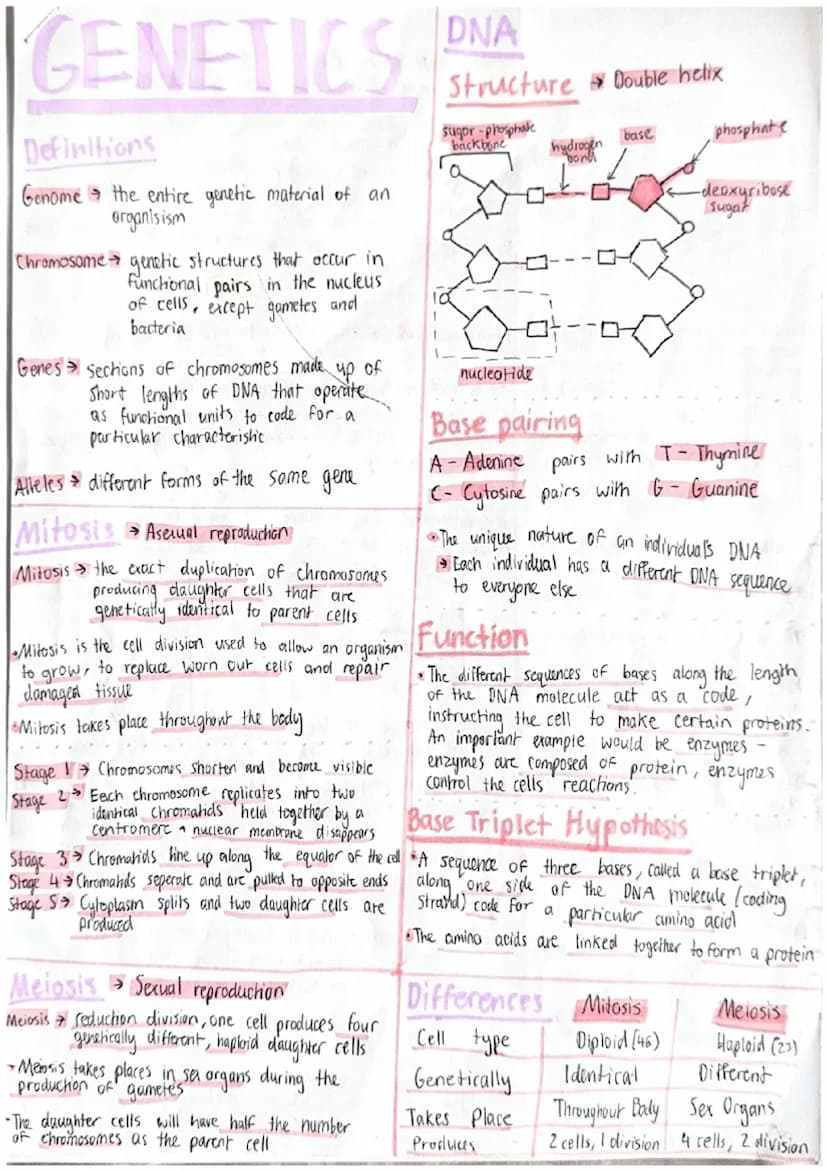 GENETICS
Definitions
Genome → the entire genetic material of an
organisism
Chromosome → genetic structures that occur in
functional pairs in the nucleus
of cells, except gametes and
bacteria
Genes → Sections of chromosomes made up of
short lengths of DNA that operate
as functional units to code for a
particular characteristic
Alleles → different forms of the same gene
Mitosis → Asexual reproduction
Mitosis → the exact duplication of chromosomes
producing daughter cells that are
genetically identical to parent
cells
•Mitosis is the cell division used to allow an organism
to grow, to replace worn out cells and repair
damaged tissue
•Mitosis takes place throughout the body
Stage 1 → Chromosomes shorten and become visible
Stage 2 → Each chromosome replicates into two
identical chromatids held together by a
centromere + nuclear membrane disappears
Stage 3 → Chromatids line up along the equator of the cell
Stage 4 → Chromatids seperate and are pulled to opposite ends
Stage 5 → Cytoplasm splits and two daughter cells are
produced
Meiosis → Sexual reproduction
Meiosis → reduction division, one cell produces four
genetically different, haploid daughter cells
•Meiosis takes places in sex organs during the
production of gametes
•The daughter cells will have half the number
of chromosomes as the parent cell
DNA
Structure → Double helix
sugar-phosphate
backbone
hydrogen
bond
base
phosphate
deoxyribose
sugar
nucleotide
Base pairing
A - Adenine pairs with T - Thymine
C - Cytosine pairs with G - Guanine
•The unique nature of an individual's DNA
→ Each individual has a different DNA sequence
to everyone else
Function
•The different sequences of bases along the length
of the DNA molecule act as a code,
instructing the cell to make certain proteins.
An important example would be enzymes -
enzymes are composed of protein, enzymes
control the cells reactions.
Base Triplet Hypothesis
•A sequence of three bases, called a base triplet,
along one side of the DNA molecule (coding
strand) code for a particular amino acid
•The amino acids are linked together to form a protein
Differences Mitosis Meiosis
Cell type Diploid (46) Haploid (23)
Genetically Identical Different
Takes Place Throughout Body Sex Organs
Produces 2 cells, 1 division 4 cells, 2 division